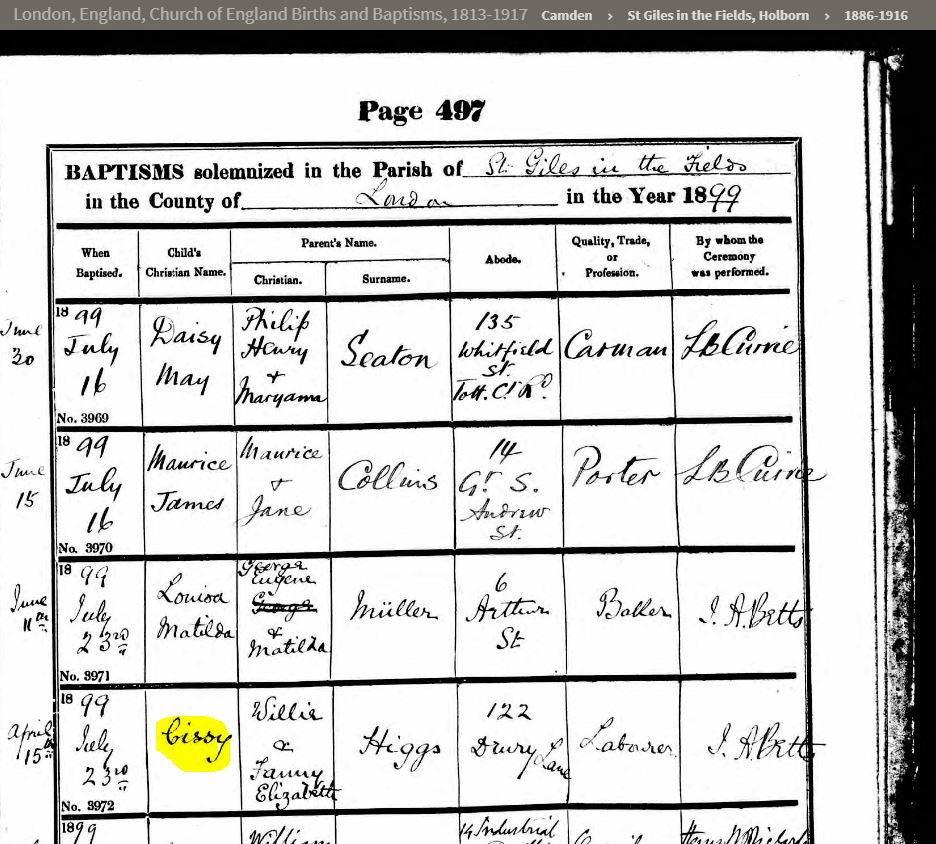 London, England, Church of England Births and Baptisms, 1813-1917 Camden › St Giles in the Fields, Holborn › 1886-1916
Page 497
BAPTISMS solemnized in the Parish of St. Giles in the Fields
in the County of London in the Year 1899
When Baptised.
Child's Christian Name.
Parent's Name.
Christian.
Surname.
Abode.
Quality, Trade, or Profession.
By whom the Ceremony was performed.
June 20
1899 July 16
No. 3969
Daisy May
Philip Henry + Maryanna
Seaton
135 Whitfield St. Tott. Ct. Rd.
Carman
LB Currie
June 15
1899 July 16
No. 3970
Maurice James
Maurice + Jane
Collins
14 Gt. S. Andrew St.
Porter
LB Currie
June 11th
1899 July 23rd
No. 3971
Louisa Matilda
George Eugene George & Matilda
Müller
6 Arthur St
Baker
J. A. Betts
April 15th
1899 July 23rd
No. 3972
Cissy
Willie & Fanny Elizabeth
Higgs
122 Drury Lane
Labourer
J. A. Betts
1899
William
14 Industrial